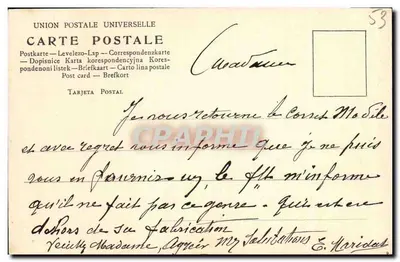 UNION POSTALE UNIVERSELLE
CARTE POSTALE
Postkarte — Levelezo-Lap — Correspondenzkarte
— Dopisnice Karta korespondencyjna Kores-
pondenoni listek — Briefkaart — Carto lina postale
Post card — Brefkort
TARJETA POSTAL
53
Madame
Je vous retourne le corset Modèle
et avec regret vous informe que je ne puis
vous en fournir le m'informe
qu'il ne fait pas ce genre
dehors de sa fabrication
Veuillez Madame, Agréer mes Salutations E.
CPARAMA